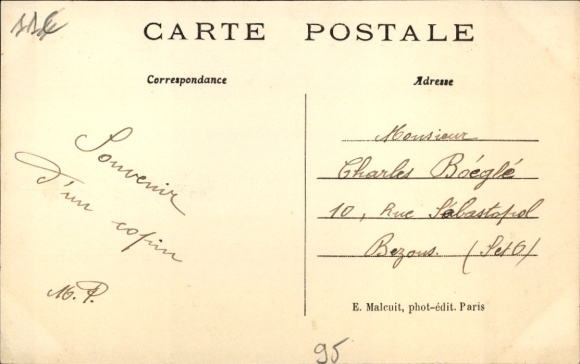 CARTE POSTALE
Correspondance
Adresse
Souvenir
d'un copin
M. P.
Monsieur
Charles Boéglé
10, Rue Sébastopol
Bezons. (SetO)
E. Malcuit, phot-édit. Paris
95